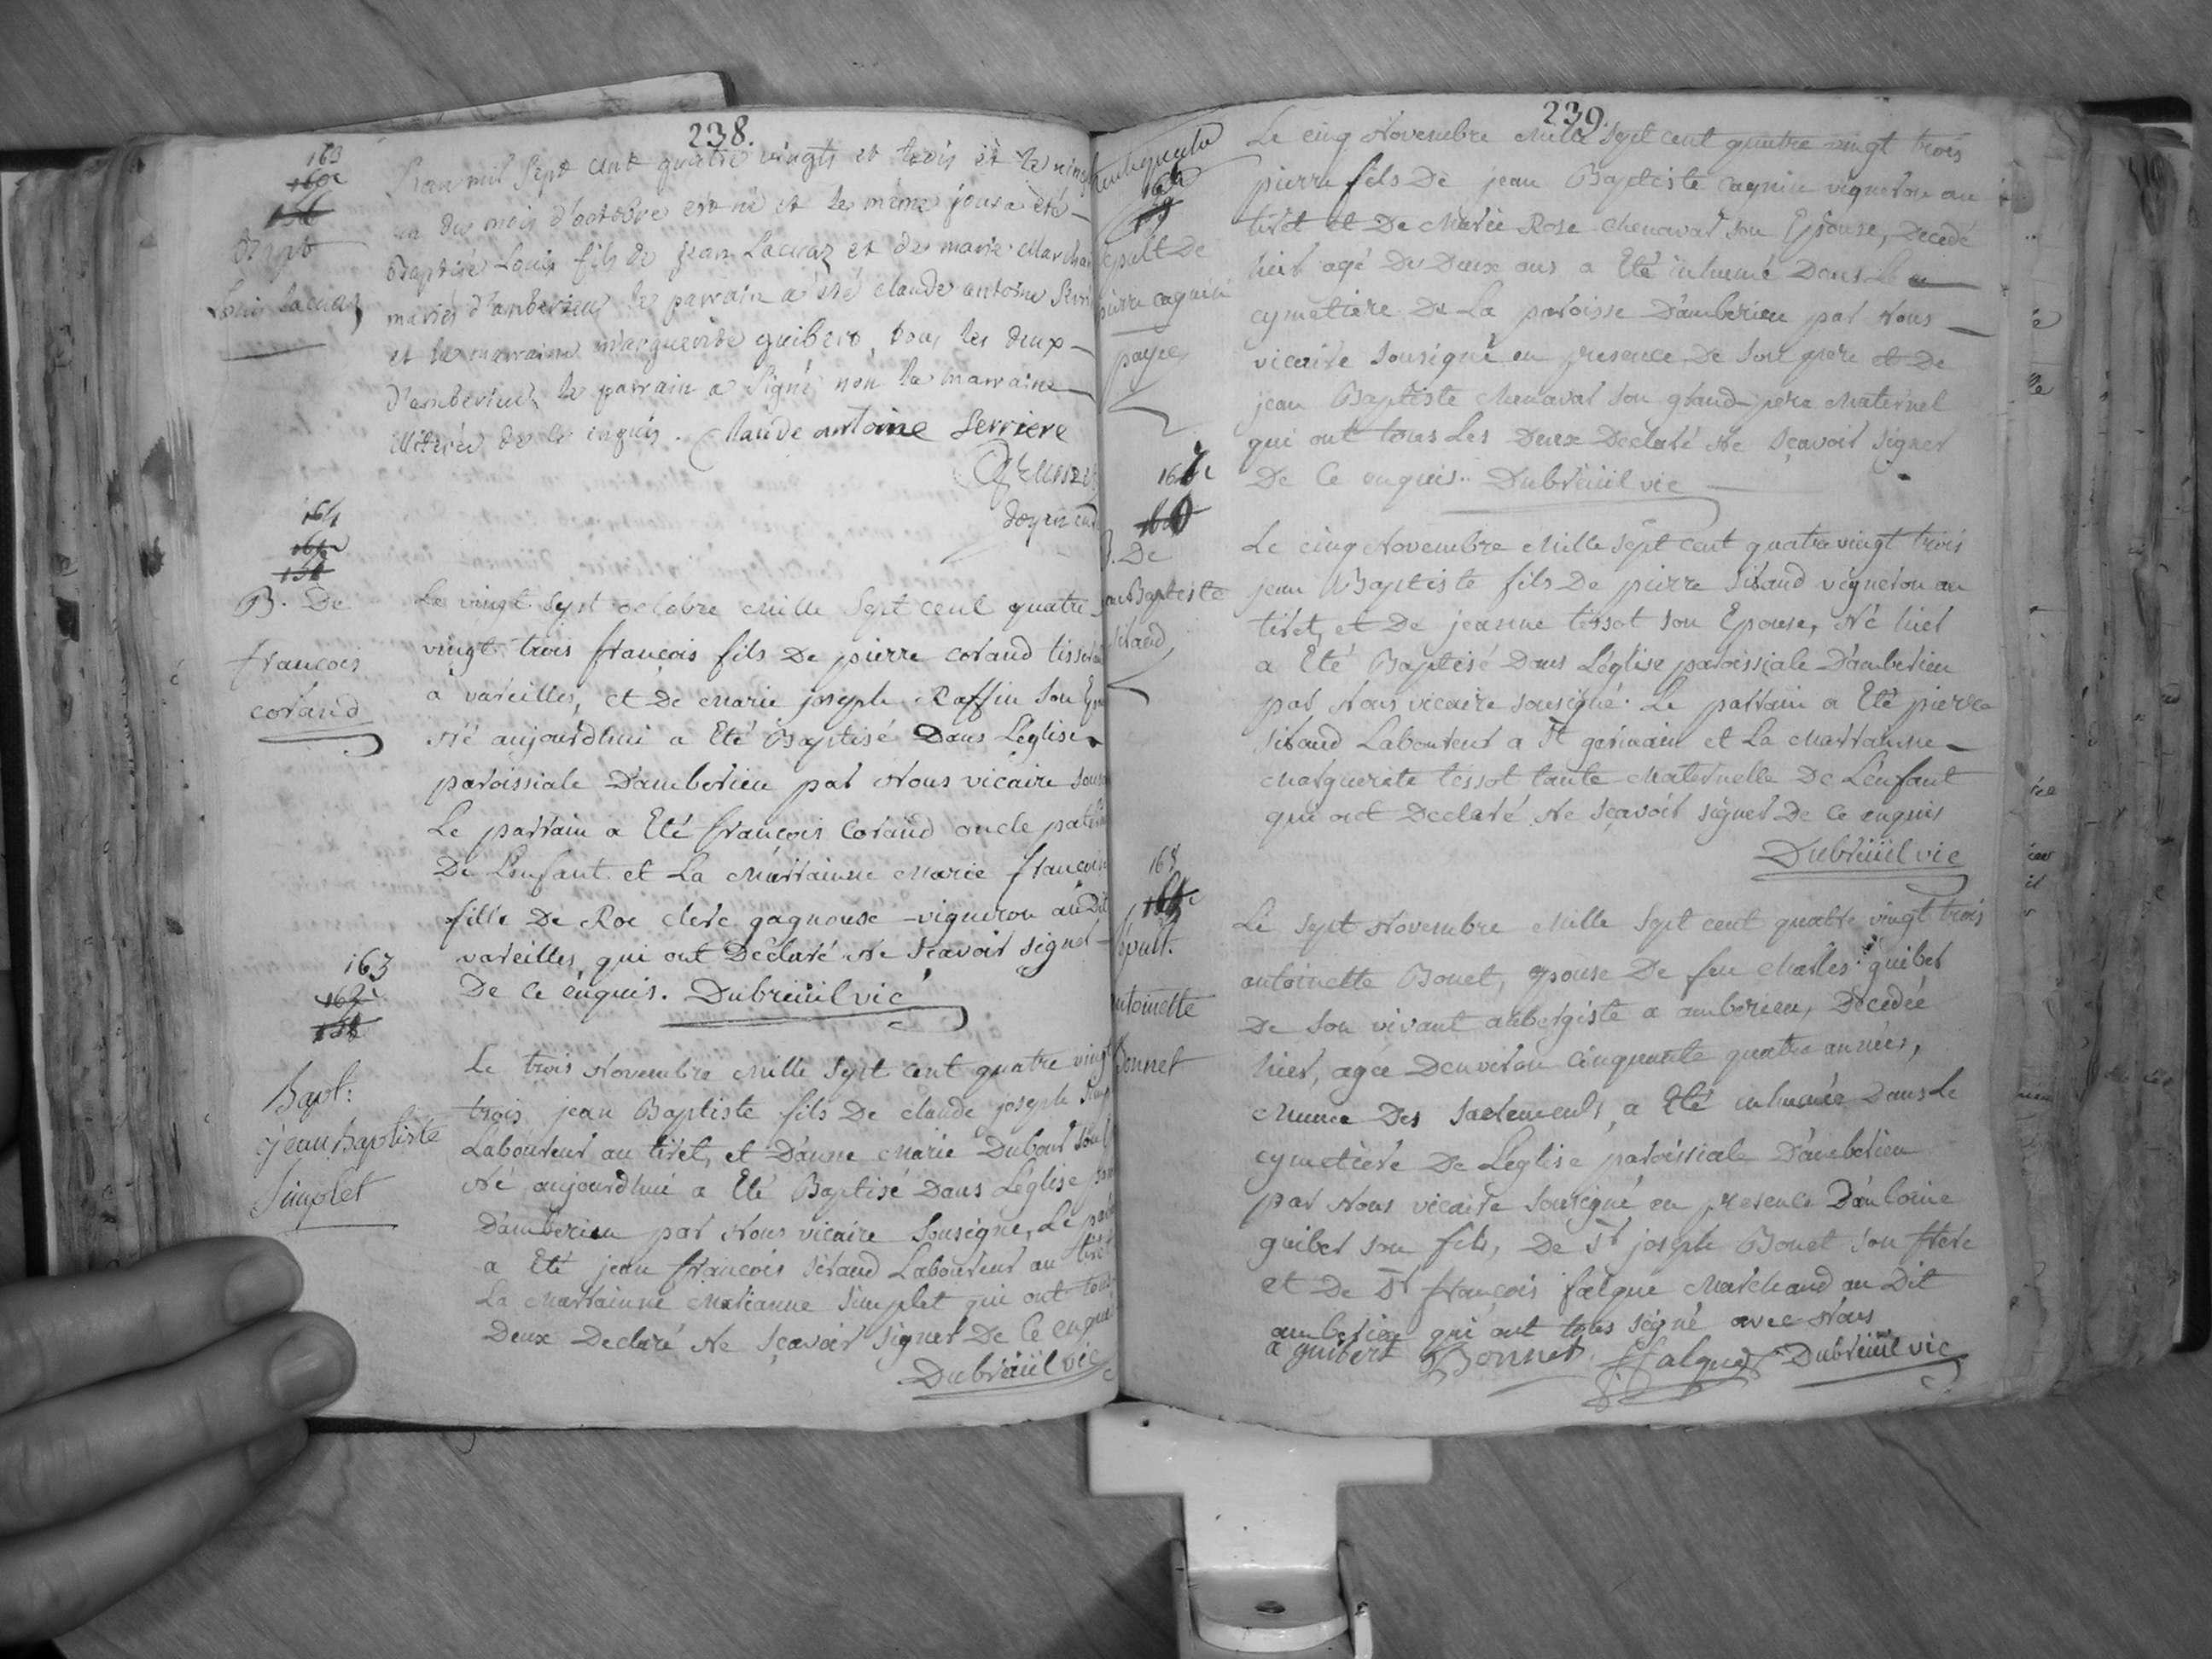 238.
163
160e
Bapt
Louis Lacuaz
L'an mil sept cent quatre vingts et trois et le vingt
un du mois d'octobre est né et le même jour a été
Baptisé Louis fils de jean Lacuaz et de marie Marchan
mariés d'amberieu le parrain a été claude antoine Serri
et la marraine marguerite guibert, tous les deux
d'amberieu le parrain a signé non la marraine
illiterée de ce enquis. Claude antoine Serriere
doyen curé
164
B. De
francois
corand
Le vingt sept octobre mille sept cent quatre
vingt trois françois fils De pierre corand tisser
à vareilles, et De marie joseph Raffin son Ep
Né aujourdhui a Eté Baptisé Dans L'église
paroissiale D'amberieu par Nous vicaire sous
Le parrain a Eté françois Corand oncle pate
De L'enfant et La Marrainne Marie françoi
fille De Roc clerc gagnouse vigneron au Dit
vareilles, qui ont Déclaré Ne Sçavoir signer
De Ce enquis. Dubreüil vic
163
162e
Bapt:
jean baptiste
Simplet
Le trois Novembre Mille sept cent quatre vingt
trois jean Baptiste fils De claude joseph Simp
Laboureur au tiret, et D'anne Marie Dubour son
Né aujourdhui a Eté Baptisé Dans L'église par
D'amberieu par Nous vicaire sousigné, Le par
a Eté jean françois Sirand Laboureur au tiret
La Marrainne Marianne Simplet qui ont tous
Deux Declaré Ne Sçavoir signer De Ce enquis
Dubreüil vic
239.
sepult De
pierre cagnin
payée
Le cinq Novembre Mille sept cent quatre vingt trois
pierre fils De jean Baptiste cagnin vigneron au
tiret et De Marie Rose chenavar son Epouse, Decedé
hier agé De Deux ans a Eté inhumé Dans Le
cymetiere De La paroisse D'amberieu par Nous
vicaire sousigné en presence De son pere et De
jean Baptiste chenavar son grand-pere Maternel
qui ont tous Les Deux Declaré Ne Sçavoir signer
De Ce enquis. Dubreüil vic
167e
160
B. De
jean Baptiste
Sirand
Le cinq Novembre Mille sept cent quatre vingt trois
jean Baptiste fils De pierre Sirand vigneron au
tiret, et De jeanne tissot son Epouse, Né hier
a Eté Baptisé Dans L'église paroissiale D'amberieu
par Nous vicaire sousigné. Le parrain a Eté pierre
Sirand Laboureur a St germain et La Marrainne
Marguerite tissot tante Maternelle De L'enfant
qui ont Declaré Ne Sçavoir signer De Ce enquis
Dubreüil vic
168
sepult.
antoinette
Bonnet
Le sept Novembre Mille sept cent quatre vingt trois
antoinette Bonet, epouse De feu charles guibet
De son vivant aubergiste a amberieu, Decedée
hier, agée D'environ cinquante quatre années,
Munie Des sacrements, a Eté inhumée Dans Le
cymetière De L'eglise paroissiale D'amberieu
par Nous vicaire sousigné en presence D'antoine
guibet son fils, De Sr joseph Bonet son frere
et De Sr françois falque Marchand au Dit
amberieu qui ont tous signé avec Nous
a guibert Bonnet ffalque Dubreüil vic